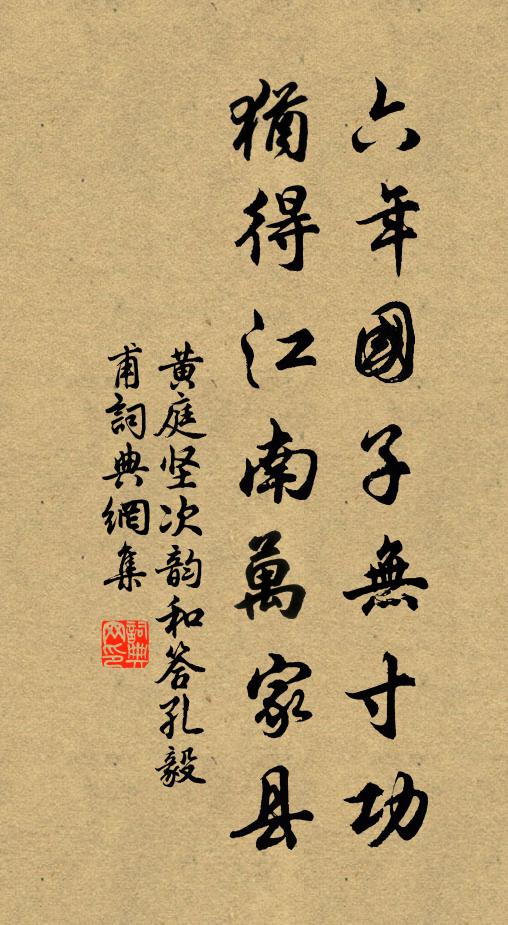 六年國子無寸功
猶得江南萬家县
黄庭坚次韵和答孔毅
甫詞典網集
詞典
网印